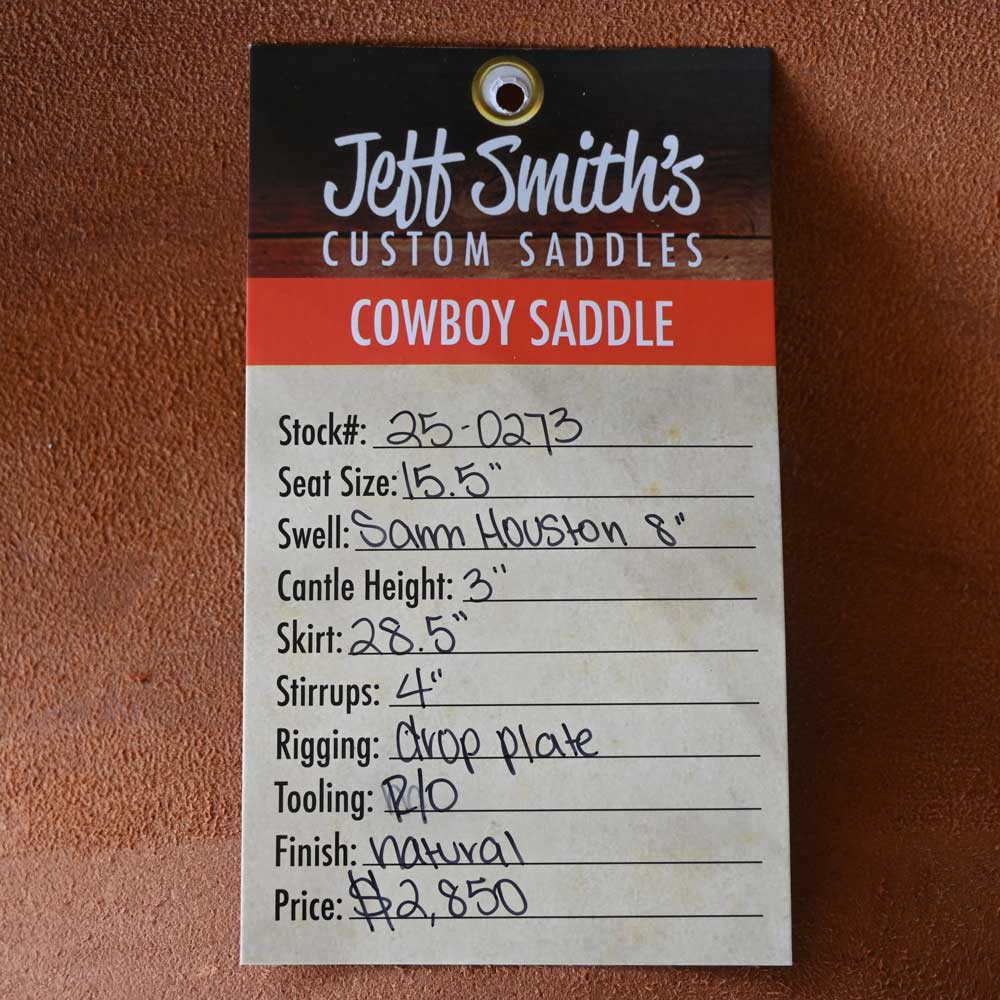 Jeff Smith's
CUSTOM SADDLES
COWBOY SADDLE
Stock#: 25-0273
Seat Size: 15.5"
Swell: Sam Houston 8"
Cantle Height: 3"
Skirt: 28.5"
Stirrups: 4"
Rigging: drop plate
Tooling: R/O
Finish: natural
Price: $2,850